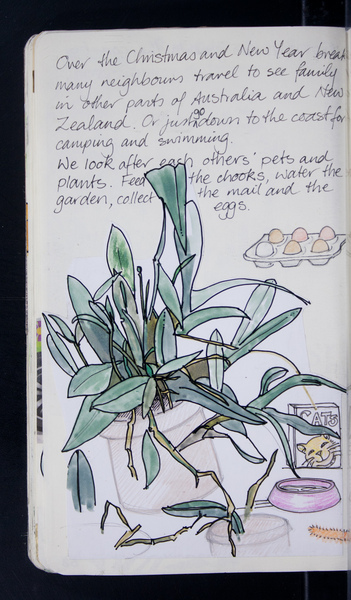 Over the Christmas and New Year break
many neighbours travel to see family
in other parts of Australia and New
Zealand. Or just go down to the coast for
camping and swimming.
We look after each others' pets and
plants. Feed the chooks, water the
garden, collect the mail and the
eggs.
CATS